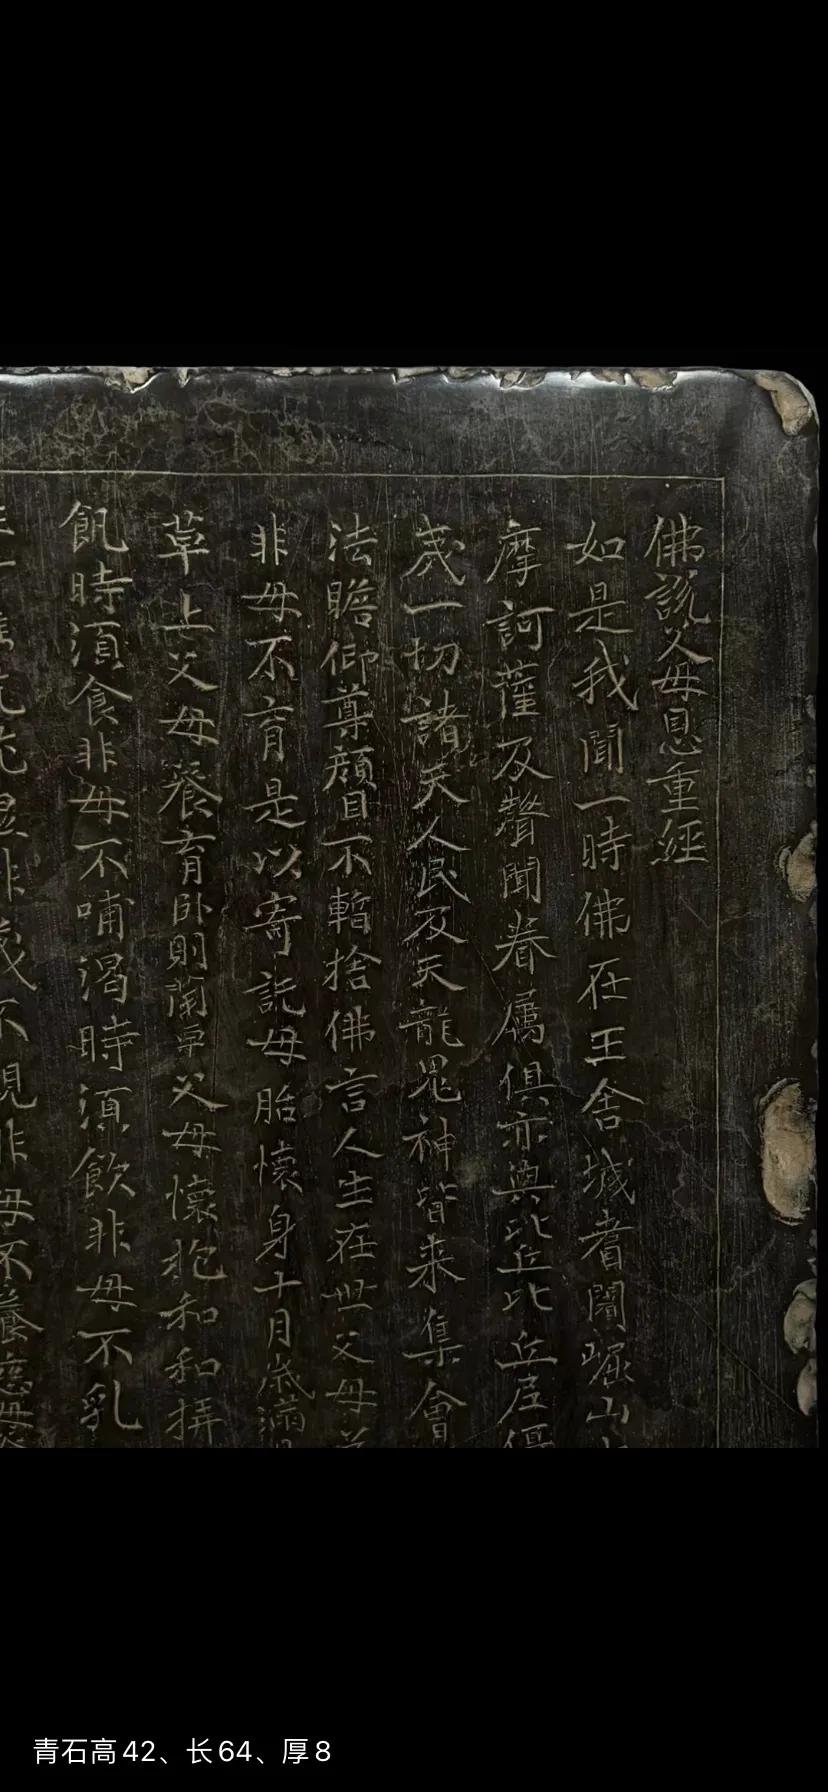 佛説父母恩重經
如是我聞一時佛在王舍城耆闍崛山
摩訶薩及聲聞眷屬俱亦與比丘比丘尼優
一切諸天人民及天龍鬼神皆来集會
法瞻仰尊顔目不暫捨佛言人生在世父母
非母不育是以寄託母胎懷身十月歲滿
草上父母養育卧則蘭車父母懷抱和和弄
飢時須食非母不哺渴時須飲非母不乳
母不養
青石高42、长64、厚8